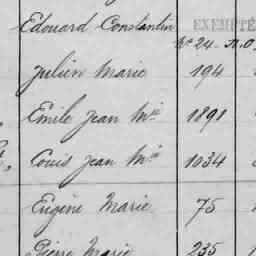 Edouard Constantin EXEMPTÉ
Nº 24. A.O
Julien Marie 194
Emile Jean Mie 1891
Louis Jean Mie 1034
Eugène Marie 75
Pierre Marie 235